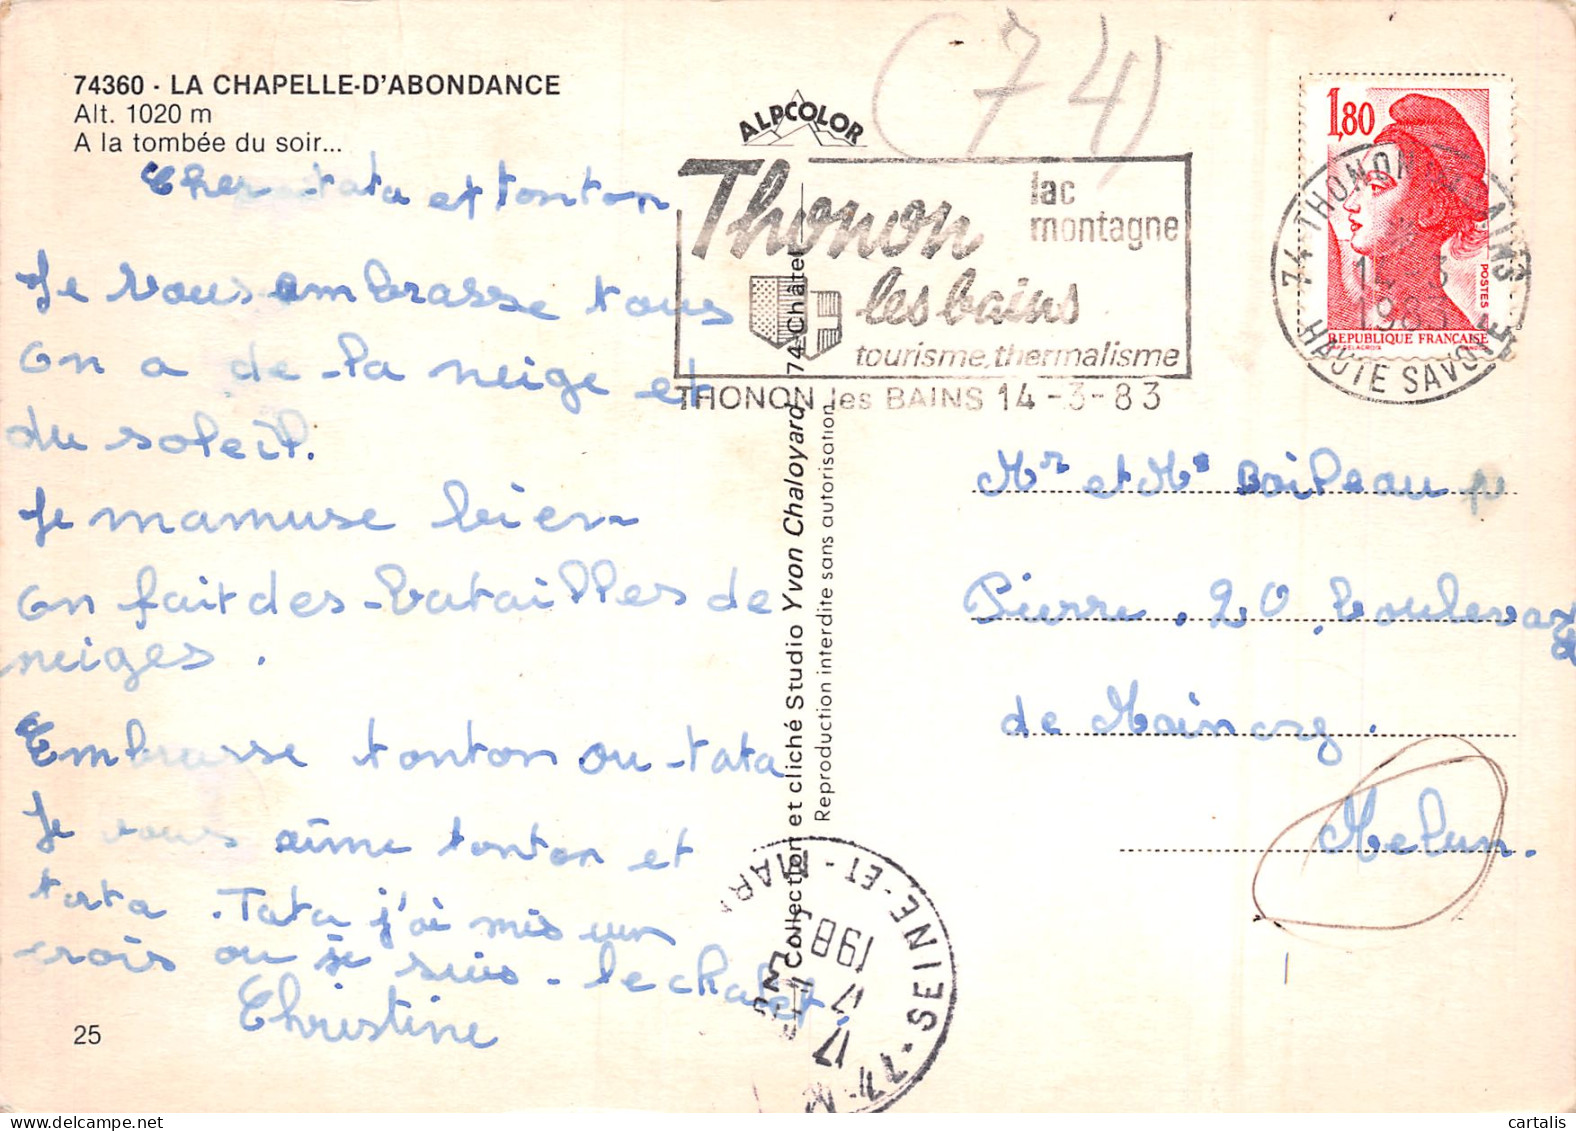 74360 - LA CHAPELLE-D'ABONDANCE
Alt. 1020 m
A la tombée du soir...
Cher tata et tonton
Je vous embrasse tous
on a de la neige et
du soleil.
Je mamuse bien
on fait des batailles de
neiges.
Embrasse tonton ou tata
Je vous aime tonton et
tata. Tata j'ai mis un
crois ou je suis. le chalet.
Christine
25
ALPCOLOR
Collection et cliché Studio Yvon Chaloyard 74 Châtel
Reproduction interdite sans autorisation
(74)
Thonon
lac
montagne
les bains
tourisme, thermalisme
THONON les BAINS 14-3-83
1,80
POSTES
REPUBLIQUE FRANÇAISE
74 THONON BAINS
14-3
1983
HAUTE SAVOIE
Mr et Me Boileau
Pierre. 20 boulevard
de Maincy.
Melun.
77- SEINE-ET-MAR
17
17
198
25